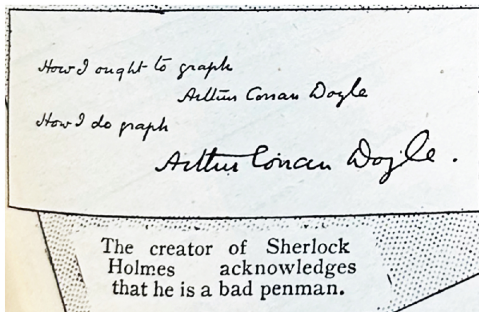 How I ought to graph
Arthur Conan Doyle
How I do graph
Arthur Conan Doyle.
The creator of Sherlock
Holmes acknowledges
that he is a bad penman.